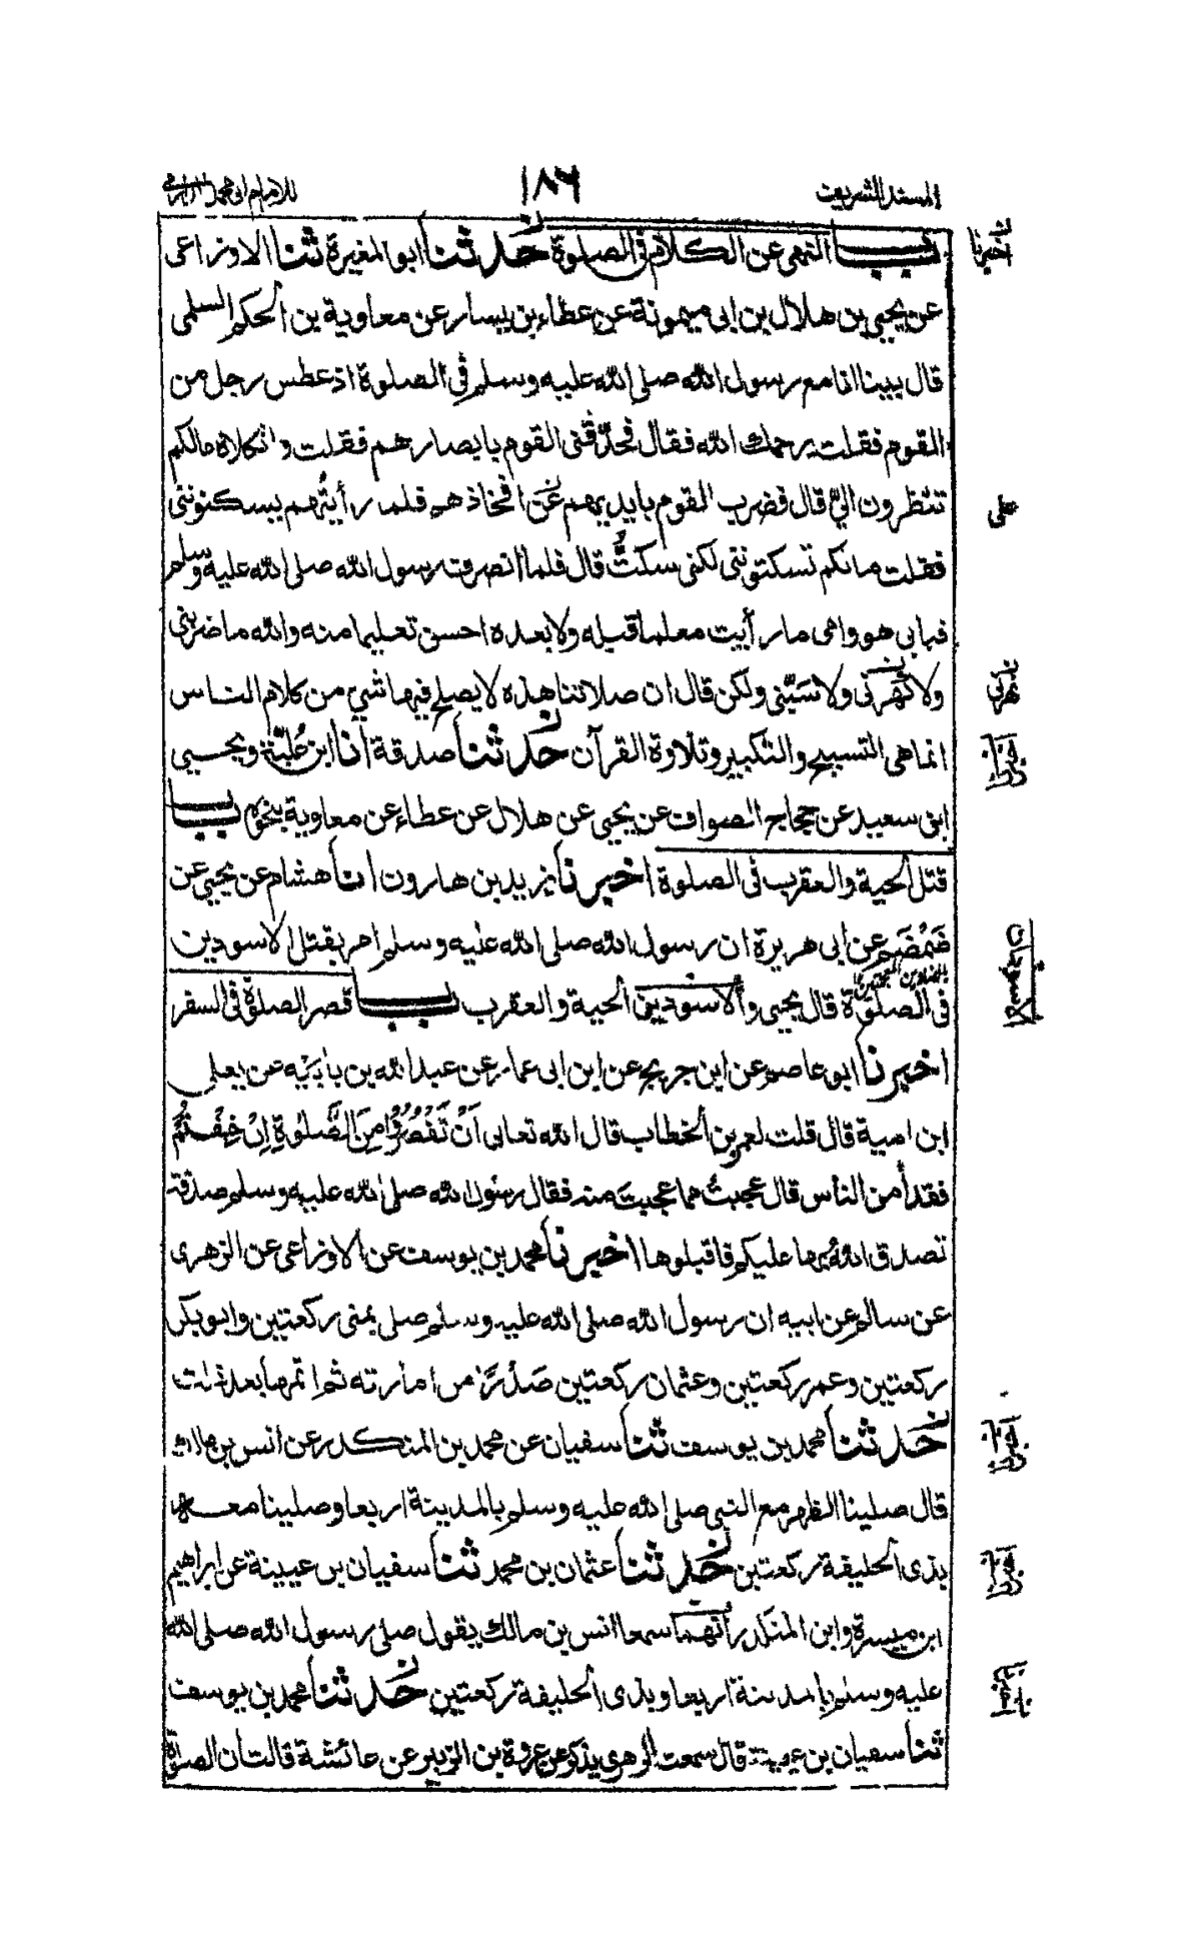 المسند الشريف ١٨٦ للامام ابى محمد الدارمى
باب النهى عن الكلام فى الصلوة حدثنا ابو المغيرة ثنا الاوزاعى
اخبرنا
عن يحيى بن هلال بن ابى ميمونة عن عطاء بن يسار عن معاوية بن الحكم السلمى
قال بينا انا مع رسول الله صلى الله عليه وسلم فى الصلوة اذ عطس رجل من
القوم فقلت يرحمك الله فقال فحدّقنى القوم بابصارهم فقلت واثكلاه مالكم
تنظرون الىّ قال فضرب القوم بايديهم عن افخاذهم فلما رأيتُهم يسكنوننى
على
فقلت مالكم تسكتوننى لكنى سكتُّ قال فلما انصرف رسول الله صلى الله عليه وسلم
فبابى هو وامى ما رأيت معلما قبله ولا بعده احسن تعليما منه والله ما ضربنى
ولا كهرنى ولا سَبّنى ولكن قال ان صلاتنا هذه لا يصلح فيها شىء من كلام الناس
نهرنى
انما هى التسبيح والتكبير وتلاوة القرآن حدثنا صدقة انا ابن علية ويحيى
اخبرنا
ابن سعيد عن حجاج الصواف عن يحيى عن هلال عن عطاء عن معاوية بنحوه باب
قتل الحية والعقرب فى الصلوة اخبرنا يزيد بن هارون انا هشام عن يحيى عن
ضَمْضَم عن ابى هريرة ان رسول الله صلى الله عليه وسلم امر بقتل الاسودين
فى الصلوة قال يحيى والاسودين الحية والعقرب باب قصر الصلوة فى السفر
الاسودان
اخبرنا ابو عاصم عن ابن جريج عن ابن ابى عمار عن عبد الله بن بابَيْه عن يعلى
ابن امية قال قلت لعمر بن الخطاب قال الله تعالى اَنْ تَقْصُرُوْا مِنَ الصَّلٰوةِ اِنْ خِفْتُمْ
فقد أمن الناس قال عجبتُ مما عجبتَ منه فقال رسول الله صلى الله عليه وسلم صدقة
تصدق اللهُ بها عليكم فاقبلوها اخبرنا محمد بن يوسف عن الاوزاعى عن الزهرى
عن سالم عن ابيه ان رسول الله صلى الله عليه وسلم صلى بمنى ركعتين وابو بكر
ركعتين وعمر ركعتين وعثمان ركعتين صَدْرًا من امارته ثم اتمها بعد ذلك
حدثنا محمد بن يوسف ثنا سفيان عن محمد بن المنكدر عن انس بن مالك
اخبرنا
قال صلينا الظهر مع النبى صلى الله عليه وسلم بالمدينة اربعا وصلينا معه
بذى الحليفة ركعتين حدثنا عثمان بن محمد ثنا سفيان بن عيينة عن ابراهيم
اخبرنا
ابن ميسرة وابن المنكدر أنهما سمعا انس بن مالك يقول صلى رسول الله صلى الله
عليه وسلم بالمدينة اربعا وبذى الحليفة ركعتين حدثنا محمد بن يوسف
اخبرنا
ثنا سفيان بن عيينة قال سمعت الزهرى يذكر عن عروة بن الزبير عن عائشة قالت ان الصلوة